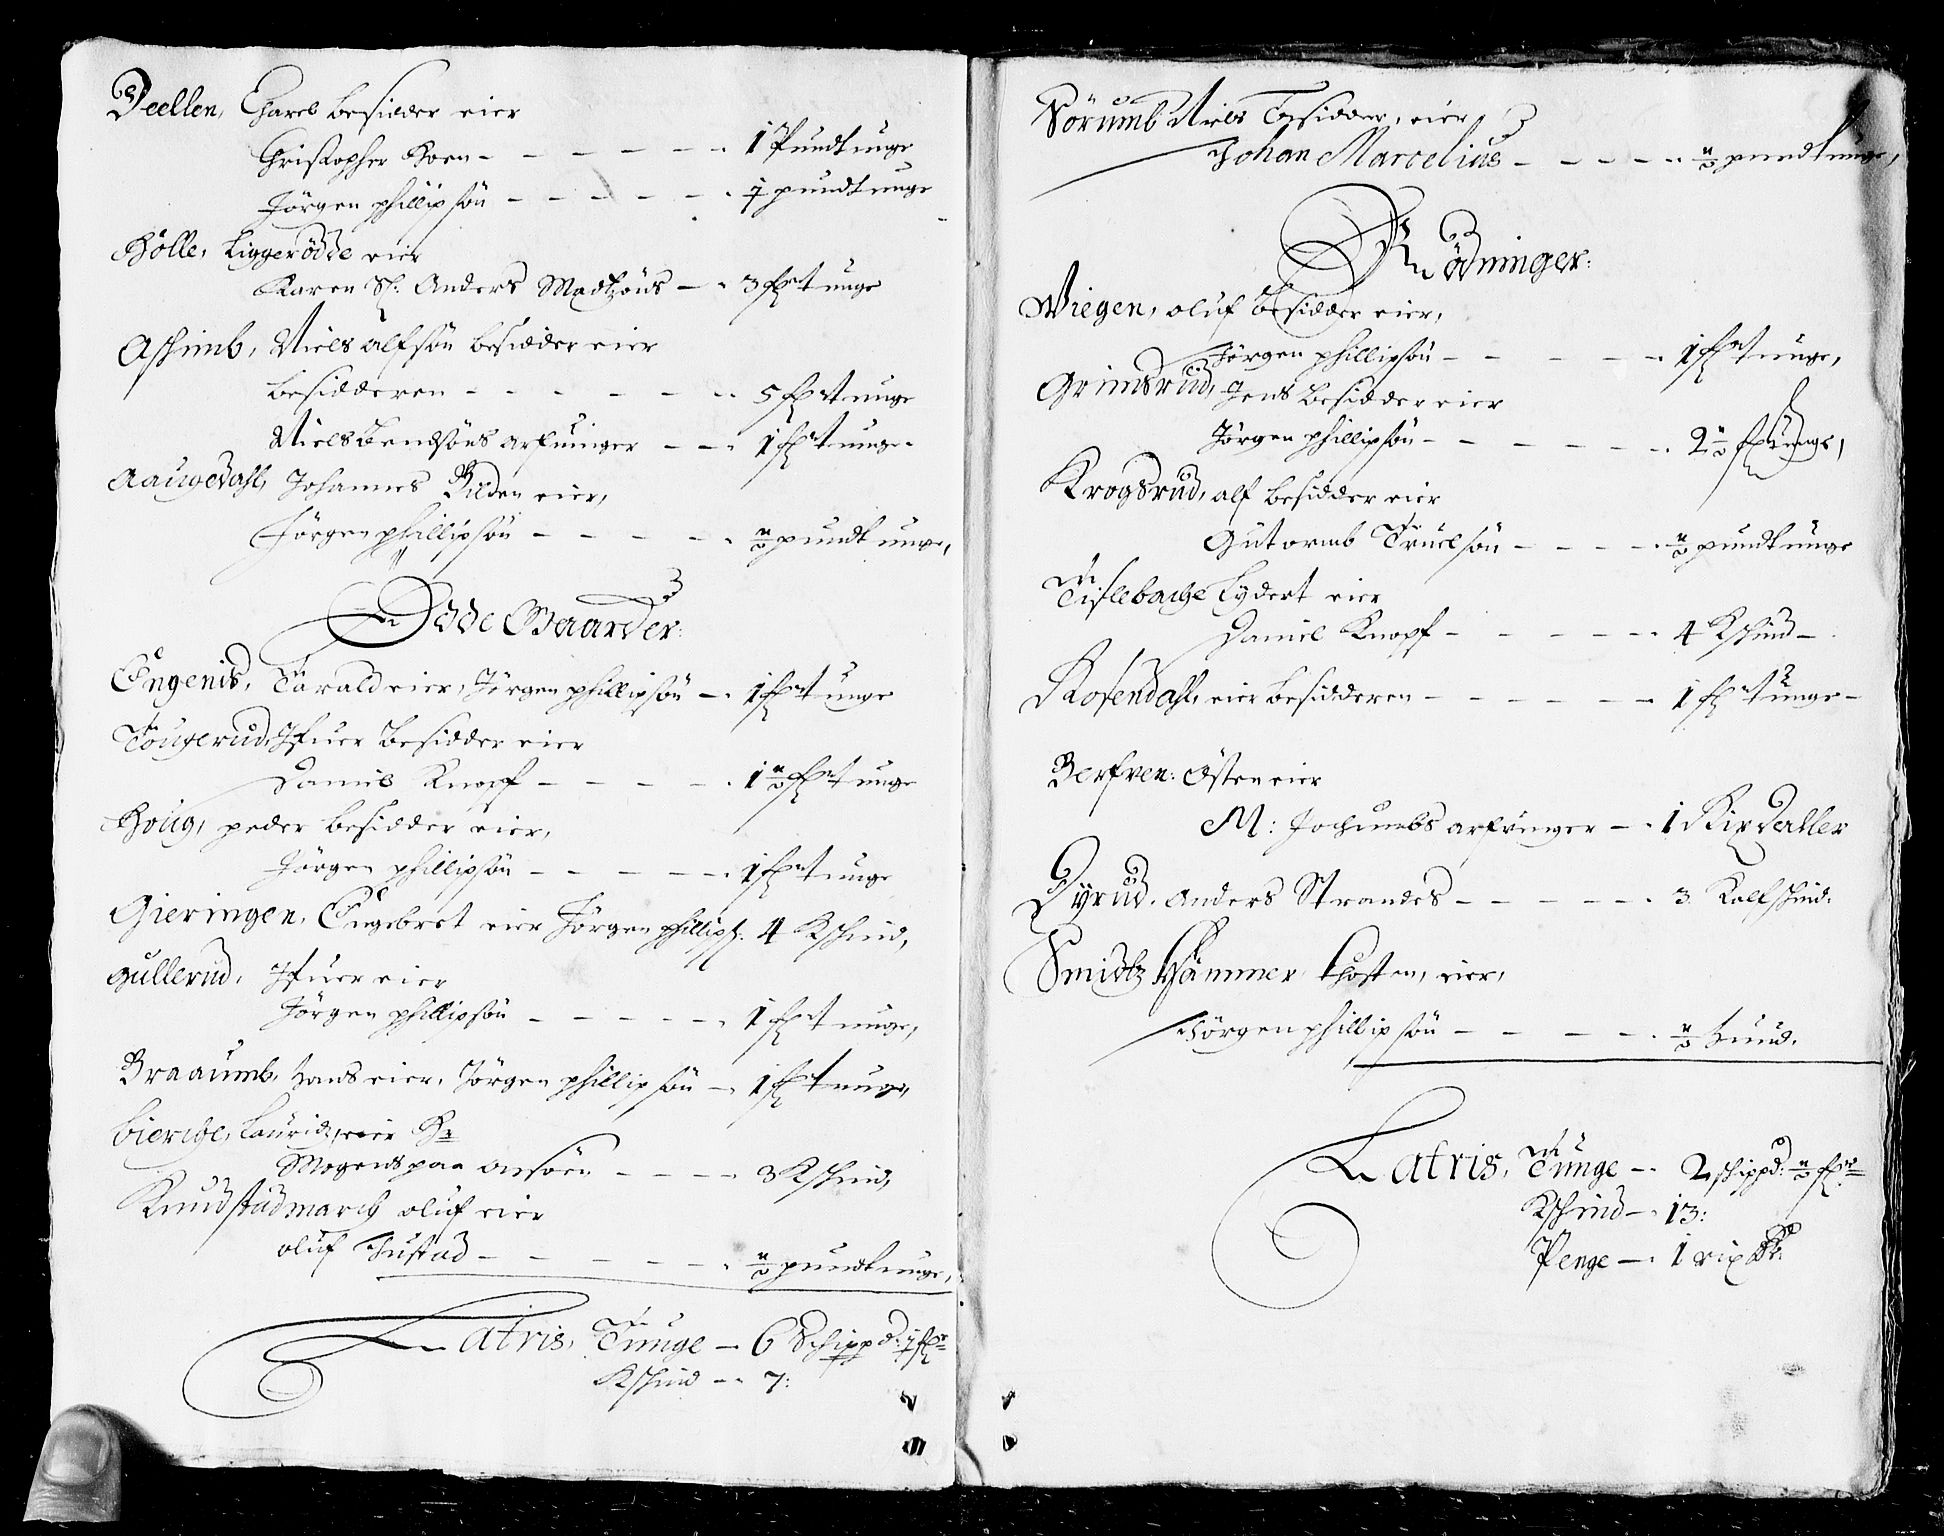 Deellen, Charel besidder eier
Christopher Koen - - - - - - 1 Pundt unge
Jörgen phillipsön - - - - - - 1 pundt unge
Hölle, Liggerödde eier
Karen Sl: Anders Madtzöns - 3 fr tunge
Askimb, Niels alfsön besidder eier
besidderen - - - - - - 5 fr tunge
Niels Bendsöns arfuinger - - - 1 fr tunge
Aaugedahl, Johannes Bilden eier,
Jörgen phillipsön - - - - - ½ pundt unge,
Ödde Gaarder:
Engenis, Tarald eier, Jörgen phillipsön - 1 fr tunge
Tougerud, Ifuer besidder eier
Daniel Knopf - - - - - 1½ fr tunge
Houg, peder besidder eier,
Jörgen phillipsön - - - - - 1 fr tunge
Gieringen, Engebret eier Jörgen phillips: 4 Kschind,
Gullerud, Ifuer eier
Jörgen phillipsön - - - - - 1 fr tunge,
Braaumb, hans eier, Jörgen phillipsön - 1 fr tunge,
bierche, Lauridz, eier Hr
Mogens paa - - - - 3 Kschind,
Knudstadmarch oluf eier
oluf Thustad - - - - - ½ pundt unge,
Latris, Tunge - 6 Schippd: 1 fr
Kschind - 7:
Sörumb Niels Besidder, eier
Johan Marcelius - - - - - ½ pundt unge,
Rödninger:
Wiegen, oluf Besidder eier,
Jörgen phillipsön - - - - - 1 fr tunge,
Grimsrud, Jens besidder eier
Jörgen phillipsön - - - - - 2½ fr tunge,
Krogsrud, alf besidder eier
Gutormb Truelsön - - - - ½ pundt unge
Tislebache Lydert eier
Daniel Knopf - - - - - 4 Kschind -
Rosendahl, eier besidderen - - - - - - 1 fr tunge -
Berfven: Östen eier
M: Jochumbs arfvinger - 1 Rixdaller
Dyrud, Anders Strandes - - - - - 3 Kalfschind:
Smidtz Hammer Thosten, eier,
Jörgen phillipsön - - - - - ½ hund.
Latris, Tunge - 2 schippd: ½ fr
Kschind - 13:
Penge - 1 rix dr: